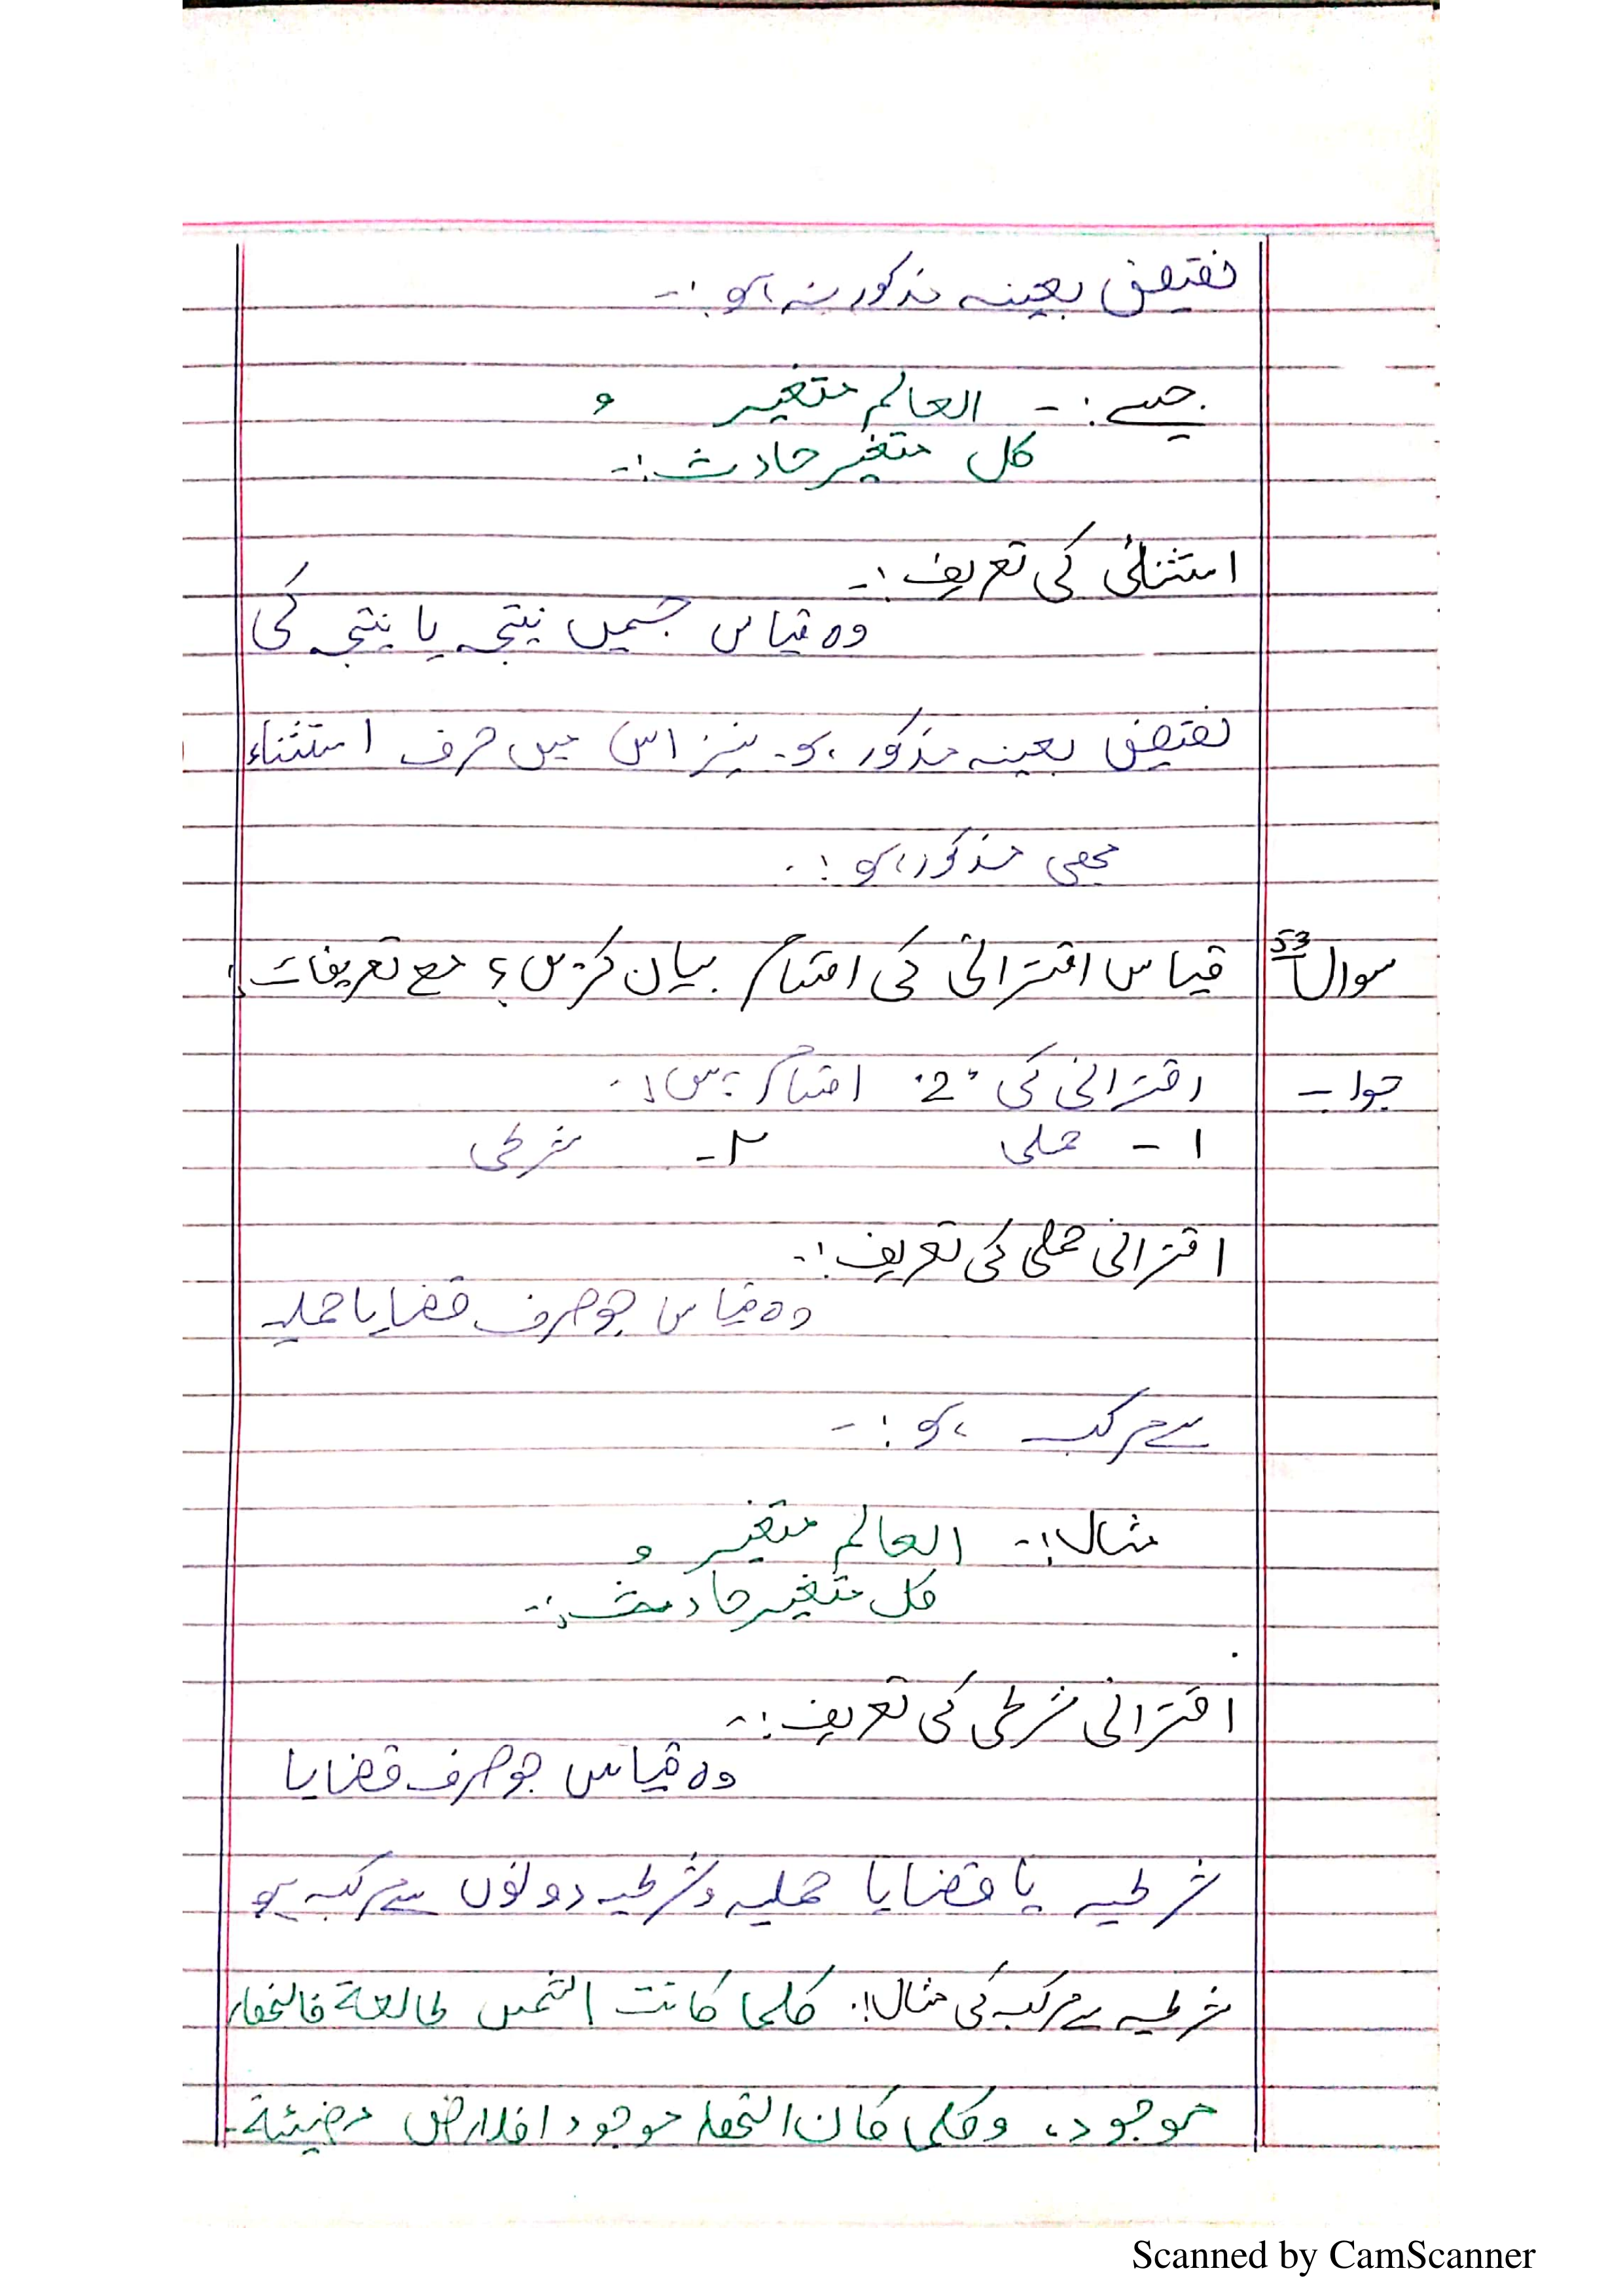 نقیض بعینہ مذکور نہ ہو :-
جیسے :- العالم متغیر و
کل متغیر حادث :-
استثنائی کی تعریف :-
وہ قیاس جسمیں نتیجہ یا نتیجہ کی
نقیض بعینہ مذکور ہو۔ نیز اس میں حرف استثناء
بھی مذکور ہو :-
سوال 53 قیاس اقترانی کی اقسام بیان کریں ؟ مع تعریفات :
جواب - اقترانی کی "2" اقسام ہیں :-
۱ - حملی ۲ - شرطی
اقترانی حملی کی تعریف :-
وہ قیاس جو صرف قضایا حملیہ
سے مرکب ہو :-
مثال :- العالم متغیر و
کل متغیر حادث :-
اقترانی شرطی کی تعریف :-
وہ قیاس جو صرف قضایا
شرطیہ یا قضایا حملیہ و شرطیہ دونوں سے مرکب ہو
شرطیہ سے مرکب کی مثال :- کلما کانت الشمس طالعة فالنھار
موجود، وکلما کان النھار موجود افلارض مضیئة -
Scanned by CamScanner